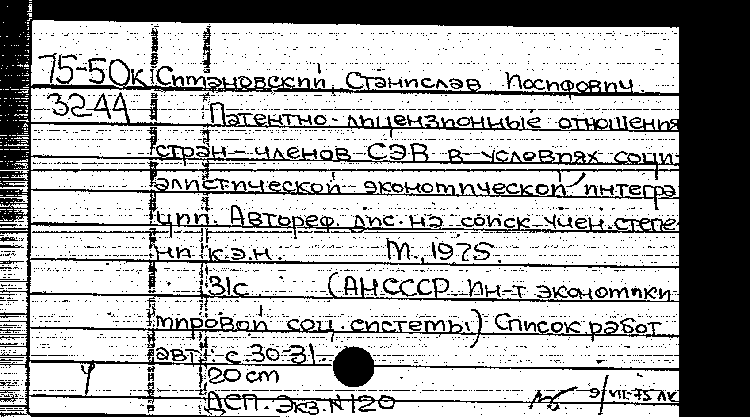 75-50к Ситановский, Станислав Иосифович.
3244
Патентно-лицензионные отношения
стран-членов СЭВ в условиях соци-
алистической экономической интегра
ции. Автореф. дис. на соиск. учен. степе-
ни к.э.н. М., 1975.
31с (АН СССР Ин-т экономики
мировой соц. системы) Список работ
авт.: с. 30-31.
20 см
ДСП. Экз. N 120
9/VII-75